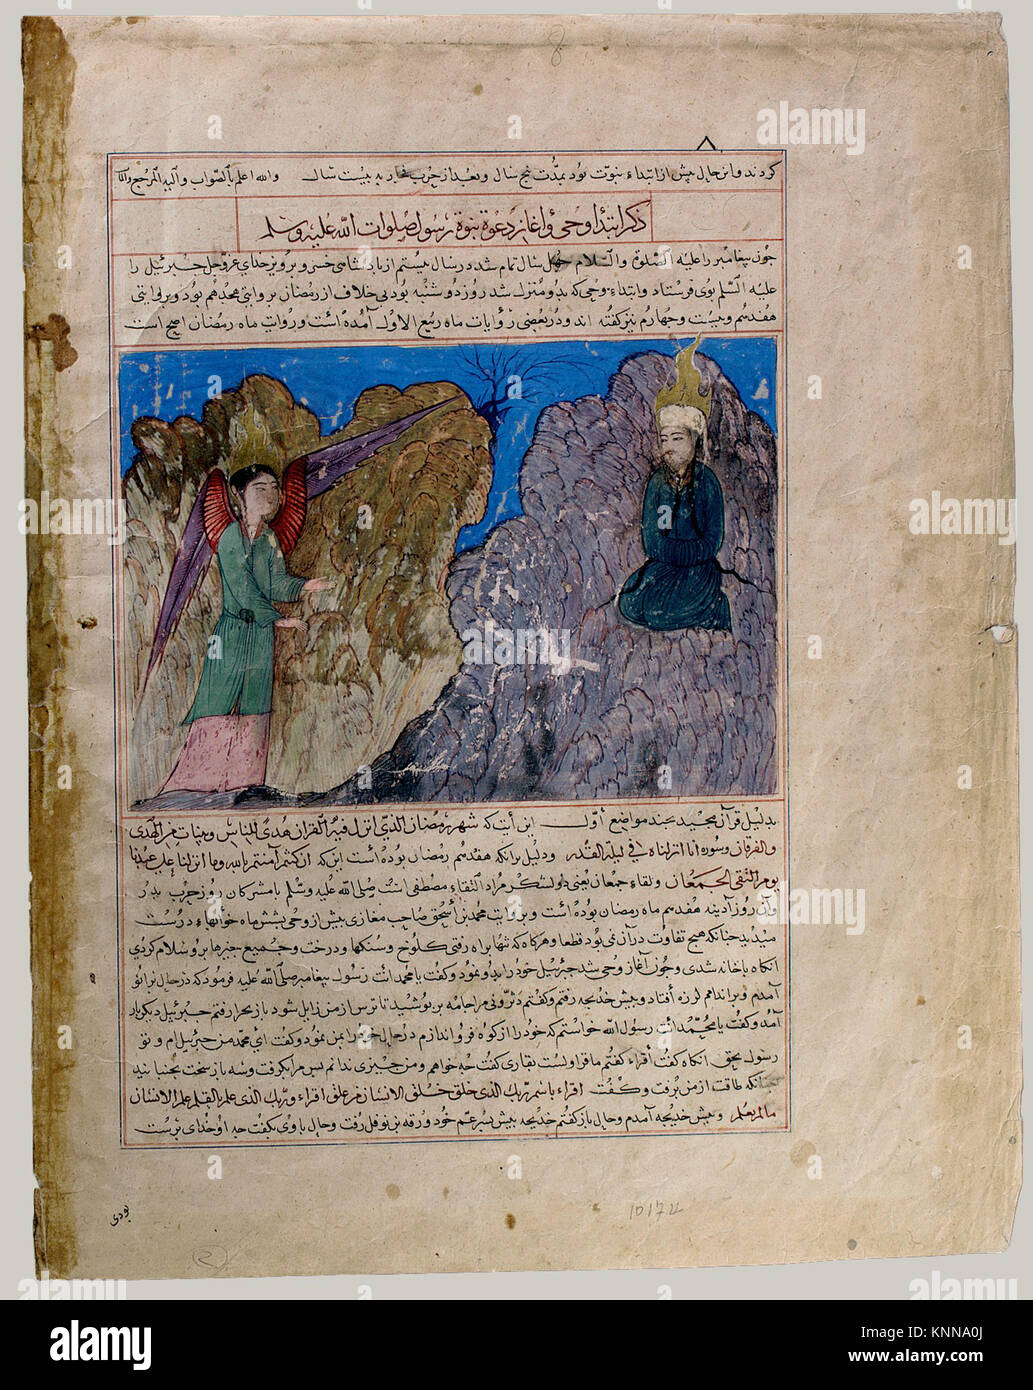 8
٨
کردند و این حال پیش از ابتداء نبوت بود بمدت پنج سال و بعد از حرب فجار به بیست سال والله اعلم بالصواب والیه المرجع والمآب
ذکر ابتداء وحی و اغاز دعوة نبوة رسول صلوات الله علیه وسلم
چون پیغامبر را علیه الصلوة والسلام چهل سال تمام شد در سال بیستم از پادشاهی خسرو پرویز خدای عزوجل جبرئیل را
علیه السلم بوی فرستاد و ابتداء وحی که بدو منزل شد روز دوشنبه بود بی خلاف از رمضان بروایتی هجدهم بود و بروایتی
هفدهم و بیست و چهارم نیز کفته اند و در بعضی روایات ماه ربیع الاول آمده است و روایت ماه رمضان اصح است
بدلیل قرآن مجید بچند مواضع اول این آیت که شهر رمضان الذی انزل فیه القرآن هدی للناس وبینات من الهدی
والفرقان و سوره انا انزلناه فی لیلة القدر ودلیل برانکه هفدهم رمضان بوده است این که ان کنتم آمنتم بالله وما انزلنا علی عبدنا
یوم التقی الجمعان ولقاء جمعان یعنی دو لشکر مراد التقاء مصطفی است صلی الله علیه وسلم با مشرکان روز حرب بدر
وآن روز آدینه هفدهم ماه رمضان بوده است و بروایت محمد بن اسحق صاحب مغازی پیش از وحی بشش ماه خوابهاء درست
میدید چنانکه هیچ تفاوت در آن نمی بود قطعا و هرکاه که تنها براه رفتی کلوخ و سنکها و درخت و جمیع چیزها برو سلام کردی
آنکاه باخانه شدی و چون آغاز وحی شد جبرئیل خود را بدو نمود و کفت یا محمد انت رسول الله پیغامبر صلی الله علیه فرمود که در حال بزانو
آمدم و براندامم لرزه افتاد و پیش خدیجه رفتم و کفتم دثرونی مرا جامه بر پوشید تا ترس از من زایل شود باز بحرا رفتم جبرئیل دیکر بار
آمد و کفت یا محمد انت رسول الله خواستم که خود را از کوه فرو اندازم در حال خود را بمن نمود و کفت ای محمد من جبرئیل ام و تو
رسول بحق آنکاه کفت اقراء کفتم ما اقرا و لست بقاری کفت چه خواهم و من چیزی ندانم پس مرا بکرفت و سه بار سخت بجنبانید
چنانکه طاقت از من برفت و کفت اقراء باسم ربک الذی خلق خلق الانسان من علق اقراء و ربک الذی علم بالقلم علم الانسان
مالم یعلم و پیش خدیجه آمدم و حال بازکفتم خدیجه پیش پسر عم خود ورقه بن نوفل رفت و حال با وی بکفت چه او خدای ترست
بودی
10172
2
alamy
Image ID: KNNA0J
www.alamy.com